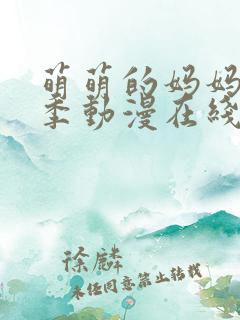 萌萌的妈妈
季動漫在綫
徐麟
未经同意禁止转载